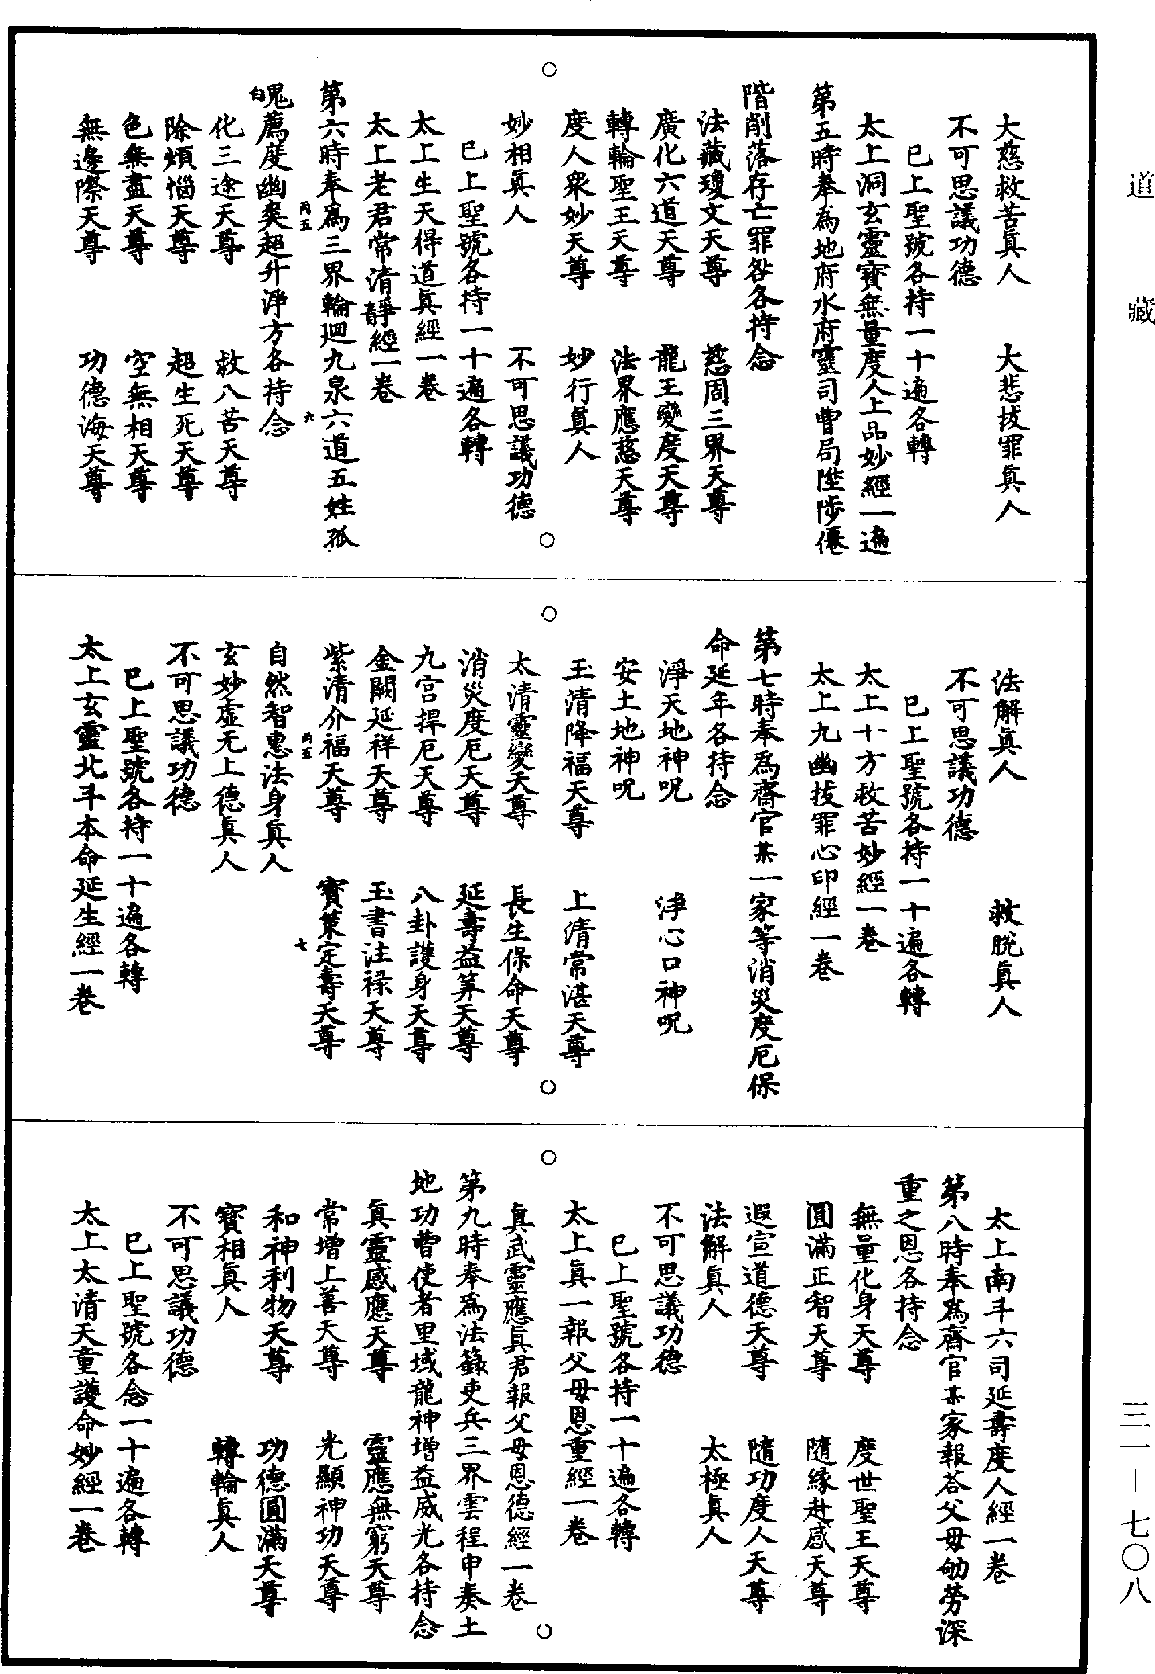 道藏
大慈救苦眞人　大悲拔罪眞人
不可思議功德
已上聖號各持一十遍各轉
太上洞玄靈寶無量度人上品妙經一遍
第五時奉爲地府水府靈司曹局陞陟僊
階削落存亡罪咎各持念
法藏瓊文天尊　慈周三界天尊
廣化六道天尊　龍王變度天尊
轉輪聖王天尊　法界應慈天尊
度人衆妙天尊　妙行眞人
妙相眞人　不可思議功德
已上聖號各持一十遍各轉
太上生天得道眞經一卷
太上老君常清靜經一卷
第六時奉爲三界輪迴九泉六道五姓孤
丙五　六
魂薦度幽爽超升淨方各持念
化三途天尊　救八苦天尊
除煩惱天尊　超生死天尊
色無盡天尊　空無相天尊
無邊際天尊　功德海天尊
法解眞人　救脫眞人
不可思議功德
已上聖號各持一十遍各轉
太上十方救苦妙經一卷
太上九幽拔罪心印經一卷
第七時奉爲齋官某一家等消災度厄保
命延年各持念
淨天地神呪　淨心口神呪
安土地神呪
玉清降福天尊　上清常湛天尊
太清靈變天尊　長生保命天尊
消災度厄天尊　延壽益筭天尊
九宮捍厄天尊　八卦護身天尊
金闕延祥天尊　玉書注祿天尊
紫清介福天尊　寶菓定壽天尊
丙五　七
自然智惠法身眞人
玄妙虛无上德眞人
不可思議功德
已上聖號各持一十遍各轉
太上玄靈北斗本命延生經一卷
太上南斗六司延壽度人經一卷
第八時奉爲齋官某家報荅父母劬勞深
重之恩各持念
無量化身天尊　度世聖王天尊
圓滿正智天尊　隨緣赴感天尊
遐宣道德天尊　隨功度人天尊
法解眞人　太極眞人
不可思議功德
已上聖號各持一十遍各轉
太上眞一報父母恩重經一卷
眞武靈應眞君報父母恩德經一卷
第九時奉爲法籙吏兵三界雲程申奏土
地功曹使者里域龍神增益威光各持念
眞靈感應天尊　靈應無窮天尊
常增上善天尊　光顯神功天尊
和神利物天尊　功德圓滿天尊
寶相眞人　轉輪眞人
不可思議功德
已上聖號各念一十遍各轉
太上太清天童護命妙經一卷
三一—七〇八